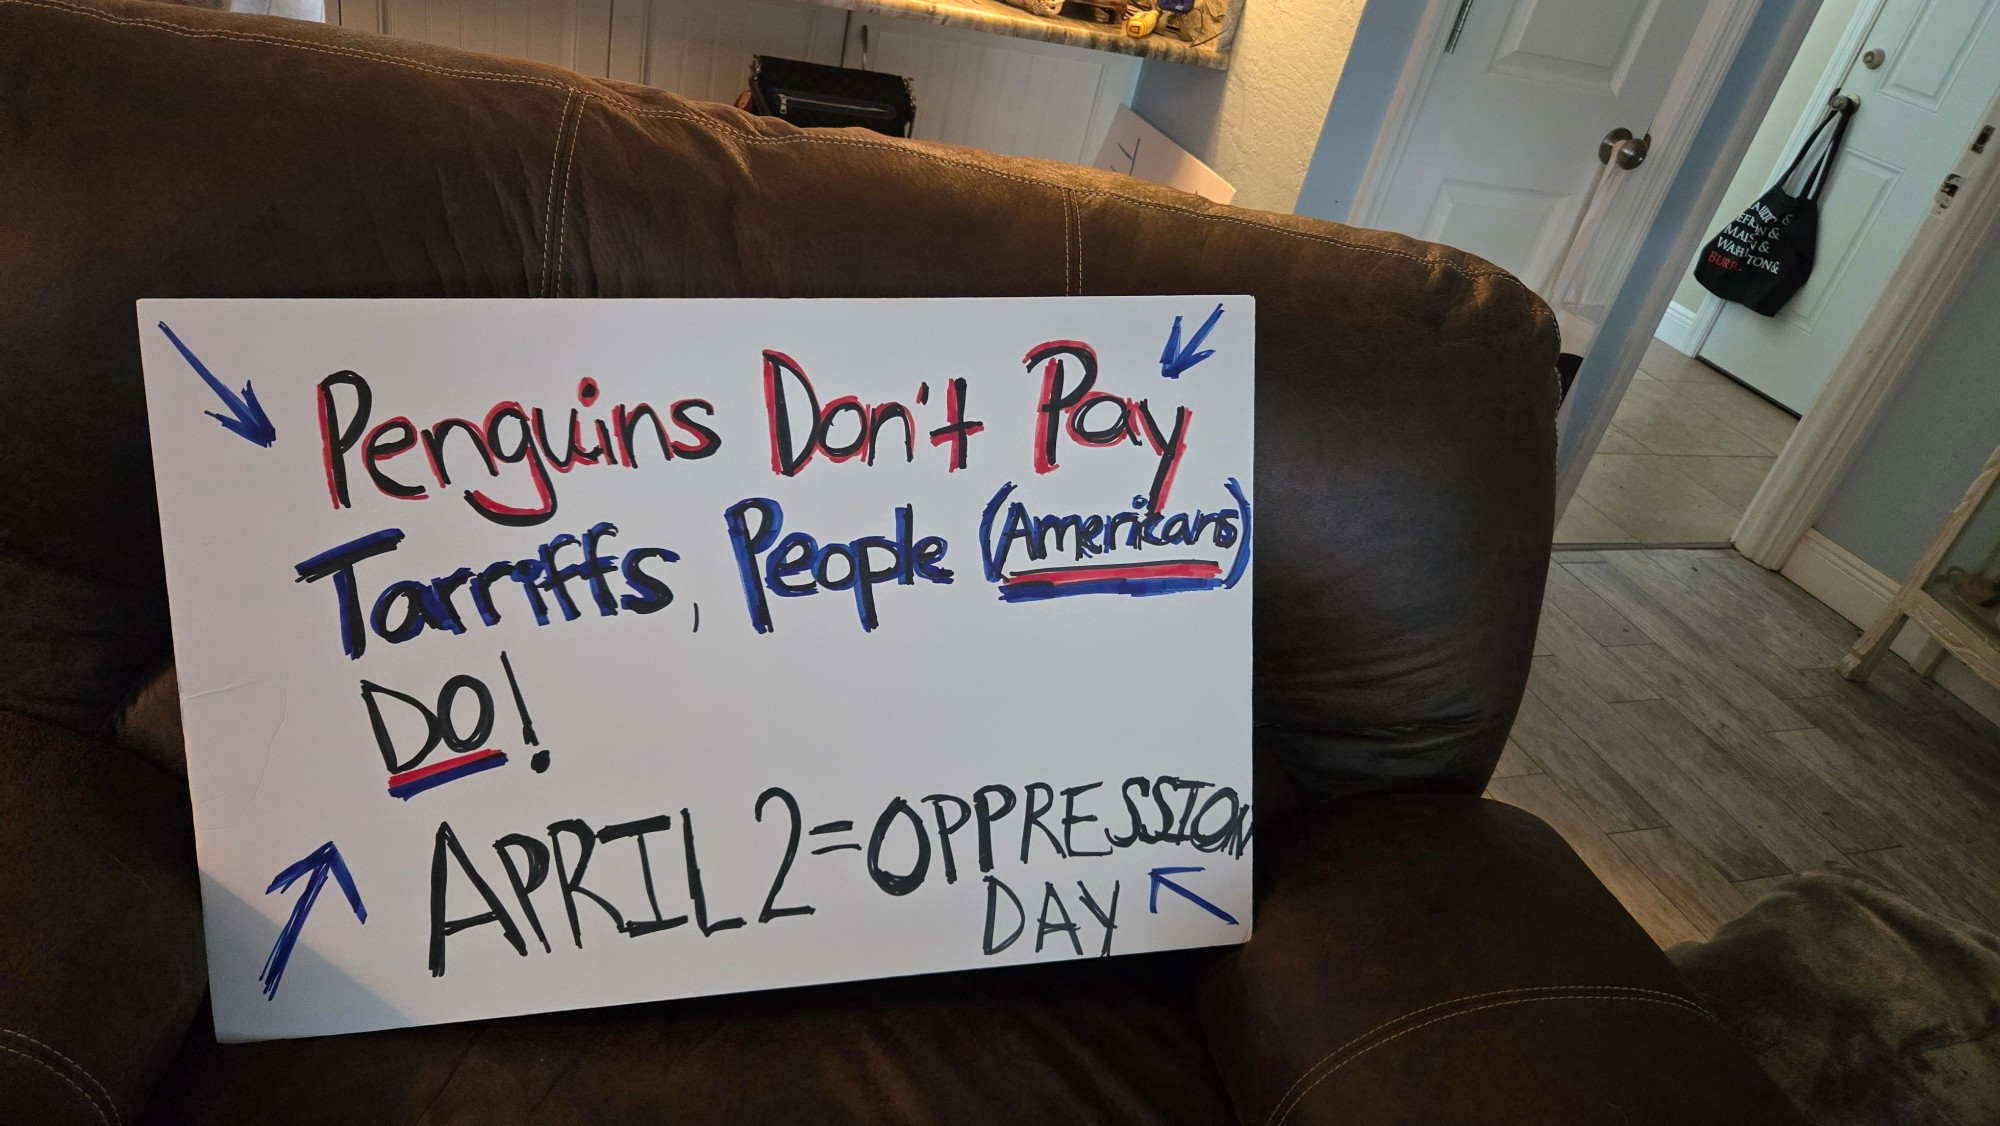 Penguins Don't Pay
Tarriffs, People (Americans)
DO!
APRIL 2 = OPPRESSION
DAY
&
&
WASHINGTON&
BURR.